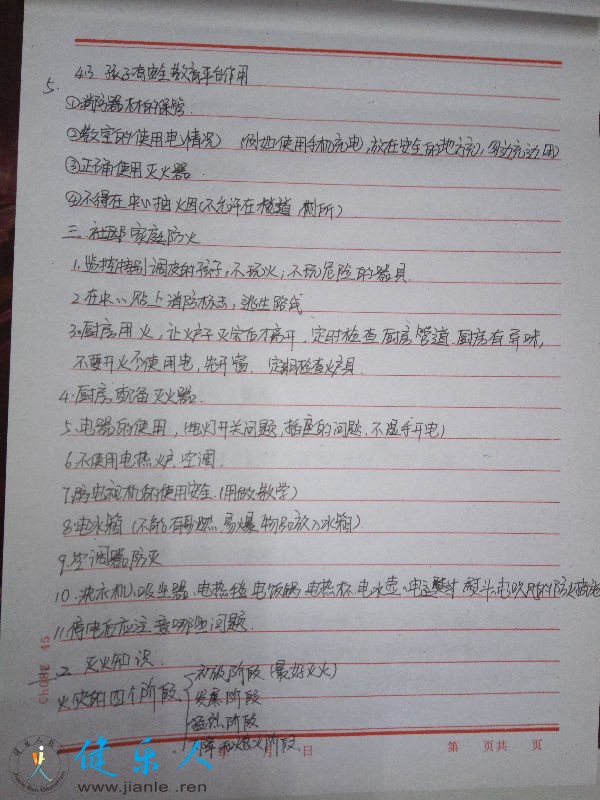 5. 4.3 孩子有安全教育平台作用
①消防器材的保管.
②教室的使用电(情况) (例如使用手机充电,放在安全的地方充,
③正确使用灭火器.
④不得在中心抽烟(不允许在楼道,厕所)
三.社区家庭防火
1.监控特别调皮的孩子,不玩火,不玩危险的器具.
2.在中心贴上消防标志,逃生路线
3.厨房用火,让炉子灭完后才离开,定时检查厨房管道.厨房有异味,
不要开火不使用电,先开窗. 定期检查炉具.
4.厨房配备灭火器.
5.电器的使用,(电灯开关问题,插座的问题,不湿手开电)
6.不使用电热炉.空调.
7.电视机的使用安全.(用做教学)
8.电冰箱(不能有易燃、易爆物品放入冰箱)
9.空调器防灭
10.洗衣机、吸尘器、电热毯、电饭锅、电热杯、电水壶、电熨斗、电吹风的防火措施
11.停电后应注意哪些问题.
二 灭火知识.
火灾的四个阶段 初级阶段(最好灭火)
发展阶段
猛烈阶段
降和熄火阶段
年 月 日
第 页共 页
Ch082 45
健乐人
www.jianle.ren